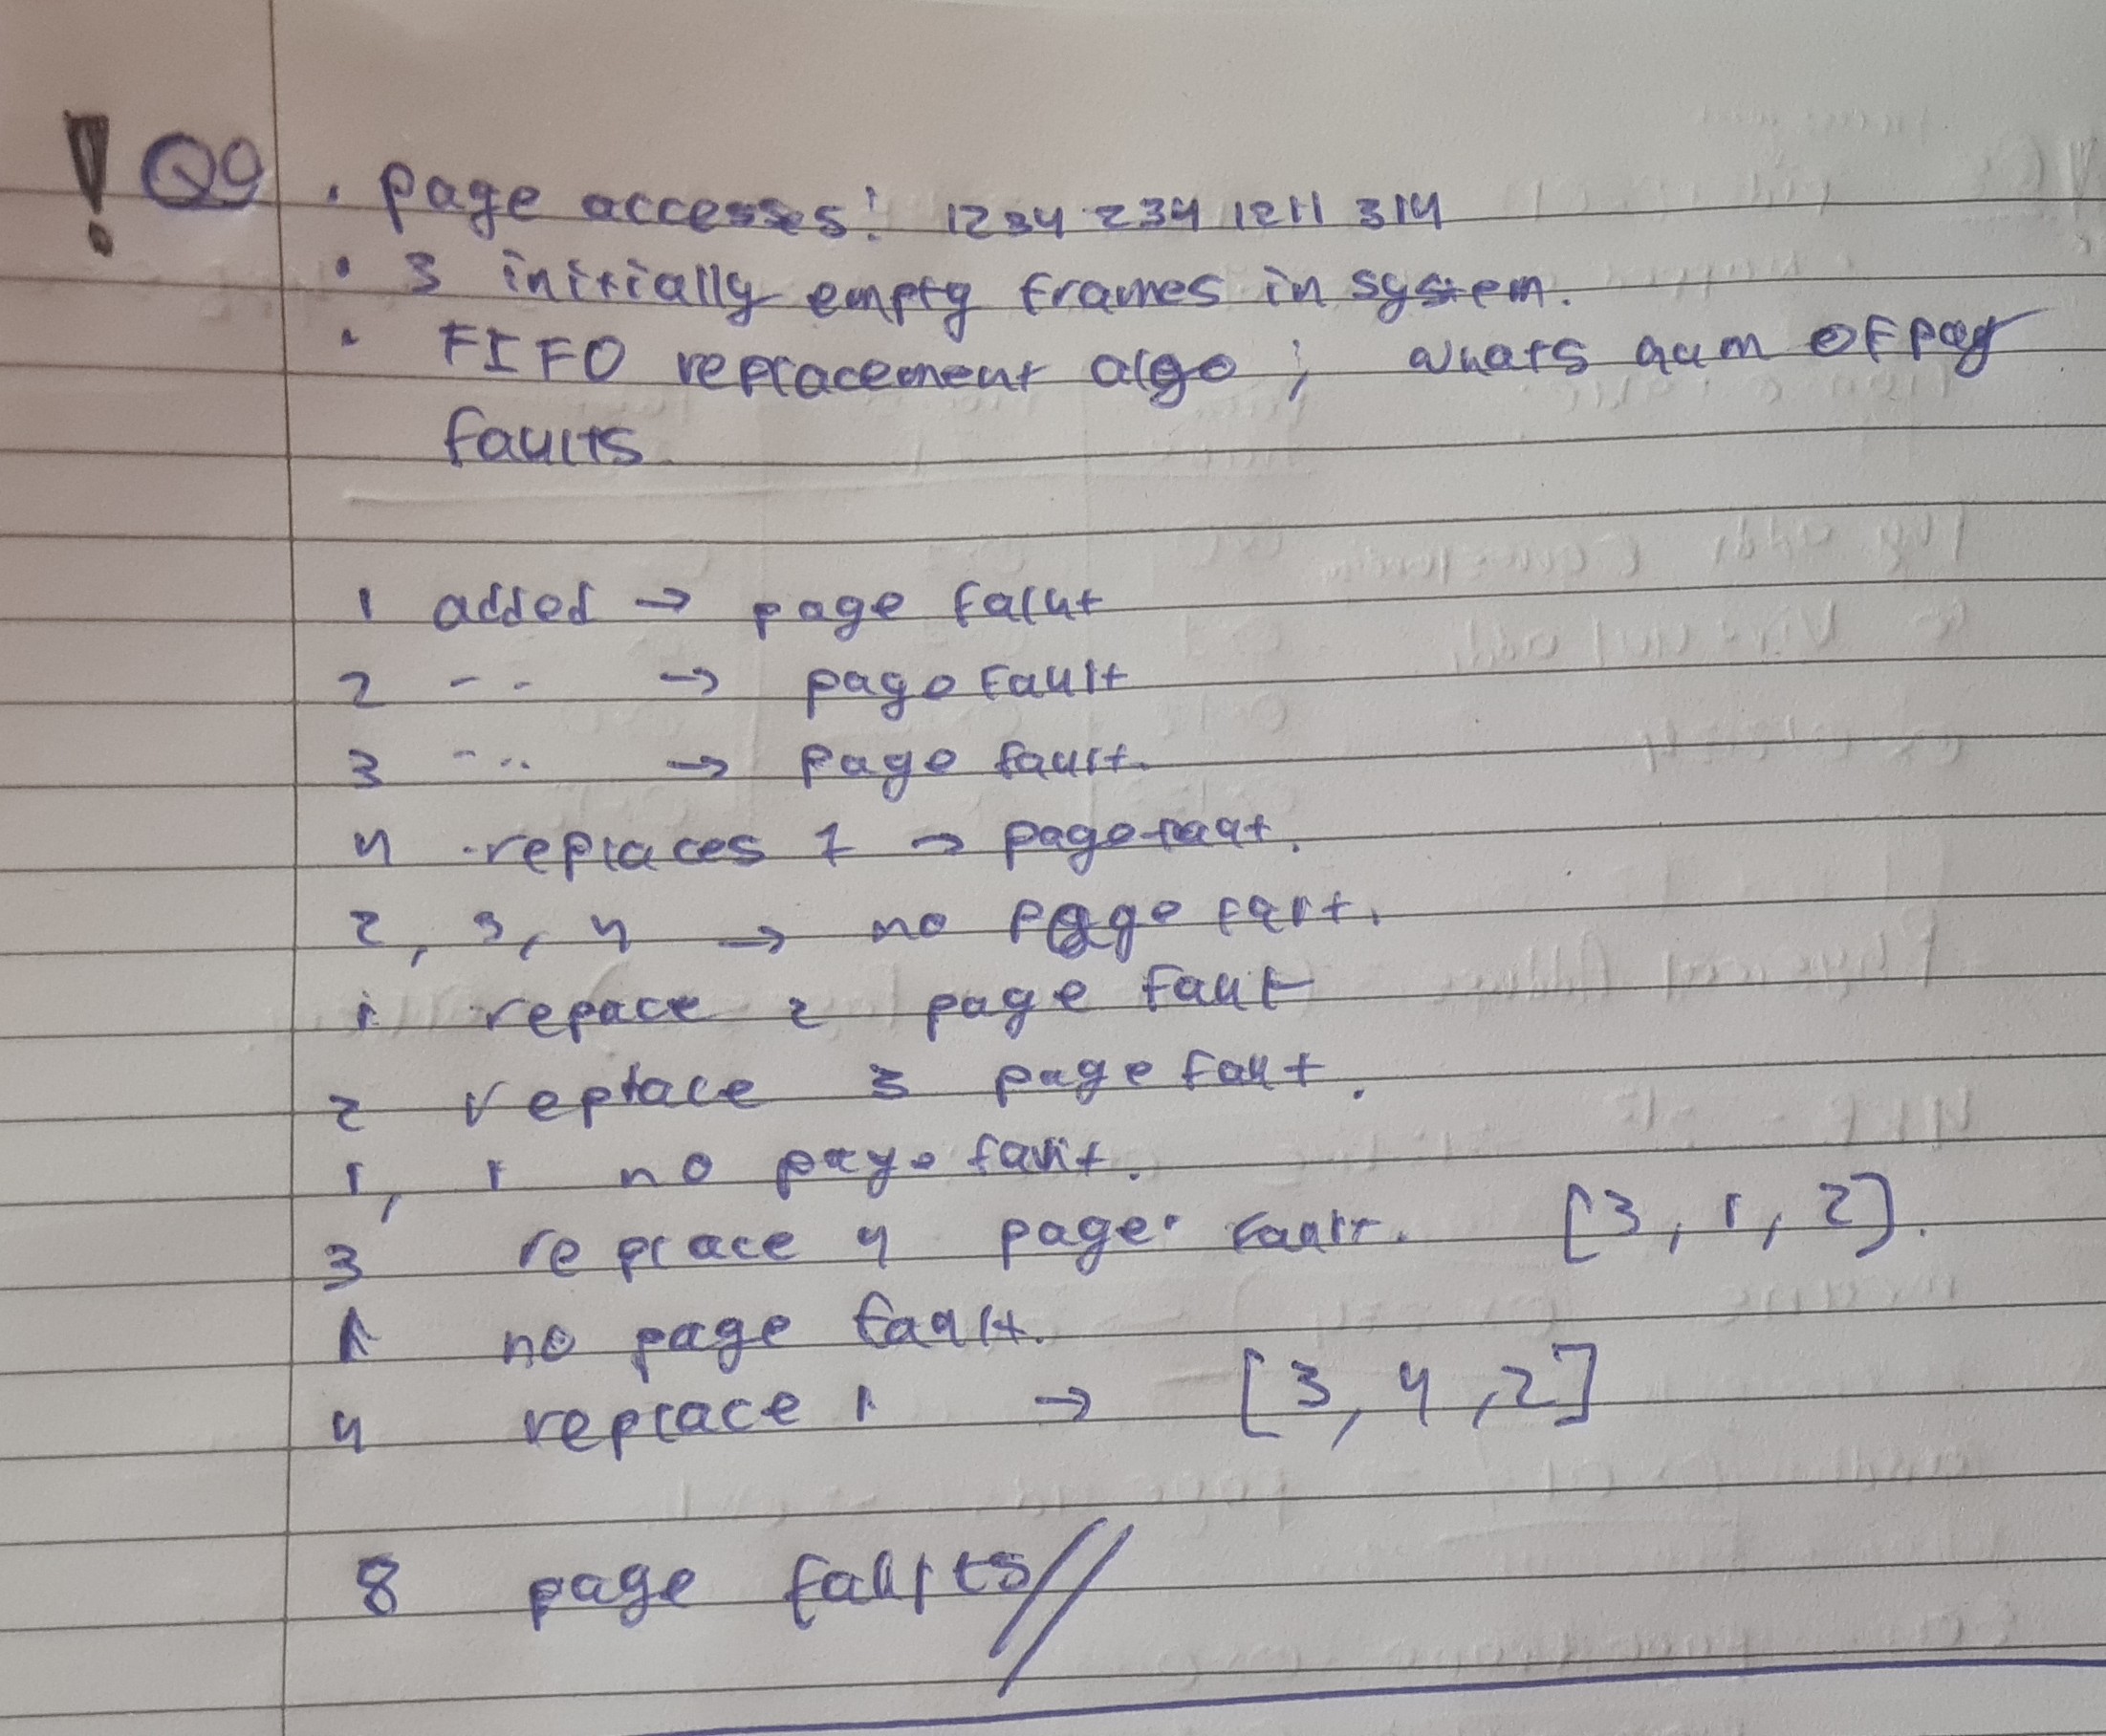 ! Q9 • page accesses: 1234 234 1211 314
• 3 initially empty frames in system.
• FIFO replacement algo; whats num of page
faults.
1 added → page falut
2 -- → page fault
3 -- → page fault.
4 -replaces 1 → page faut.
2, 3, 4 → no page fart.
1 repace 2 page faut
2 replace 3 page faut.
1, 1 no page fault.
3 replace 4 page fault. [3, 1, 2].
1 no page fault.
4 replace 1 → [3, 4, 2]
8 page faults //